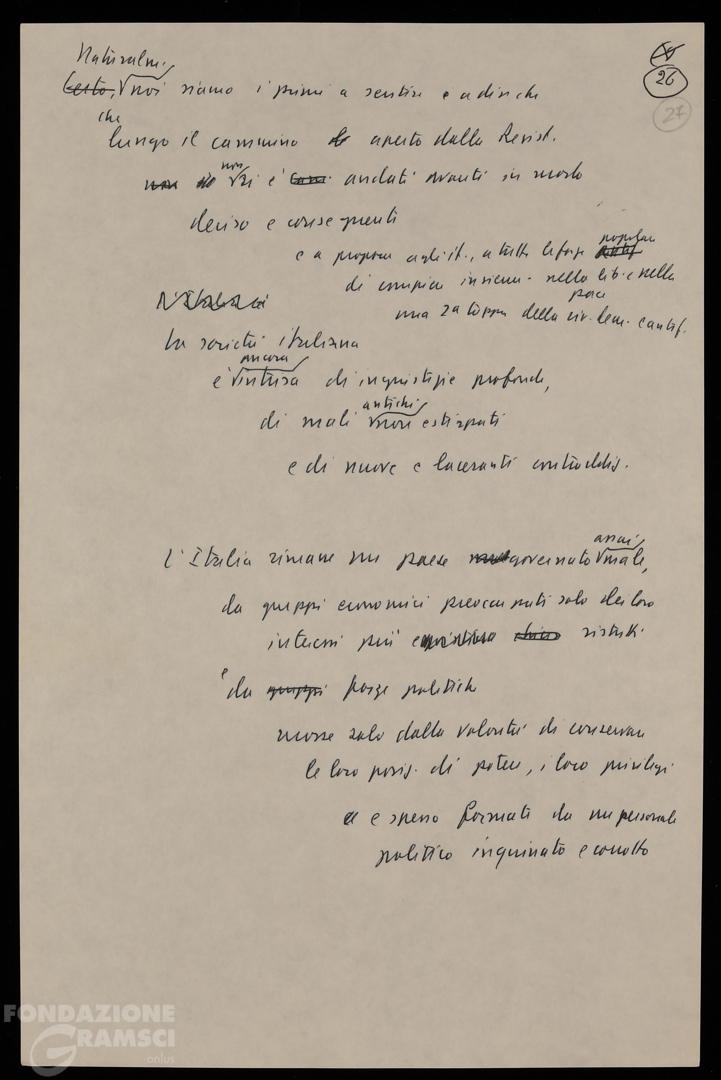 26
27
Naturalm.
Certo, noi siamo i primi a sentire e a dire che
che
lungo il cammino aperto dalla Resist.
non
non si è andati avanti in modo
deciso e conseguente
e a proporre agli it., a tutte le forze popolari
di compiere insieme - nella lib. e nella
pace
una 2a tappa della riv. dem. e antif.
L'Italia è
La società italiana
ancora
è intrisa di ingiustizie profonde,
antichi
di mali non estirpati
e di nuove e laceranti contraddiz.
L'Italia rimane un paese governato male,
assai
da gruppi economici preoccupati solo dei loro
interessi più ristretti
e da gruppi forze politiche
mosse solo dalla volontà di conservare
le loro posiz. di potere, i loro privilegi
e spesso formati da un personale
politico inquinato e corrotto
FONDAZIONE
GRAMSCI
onlus